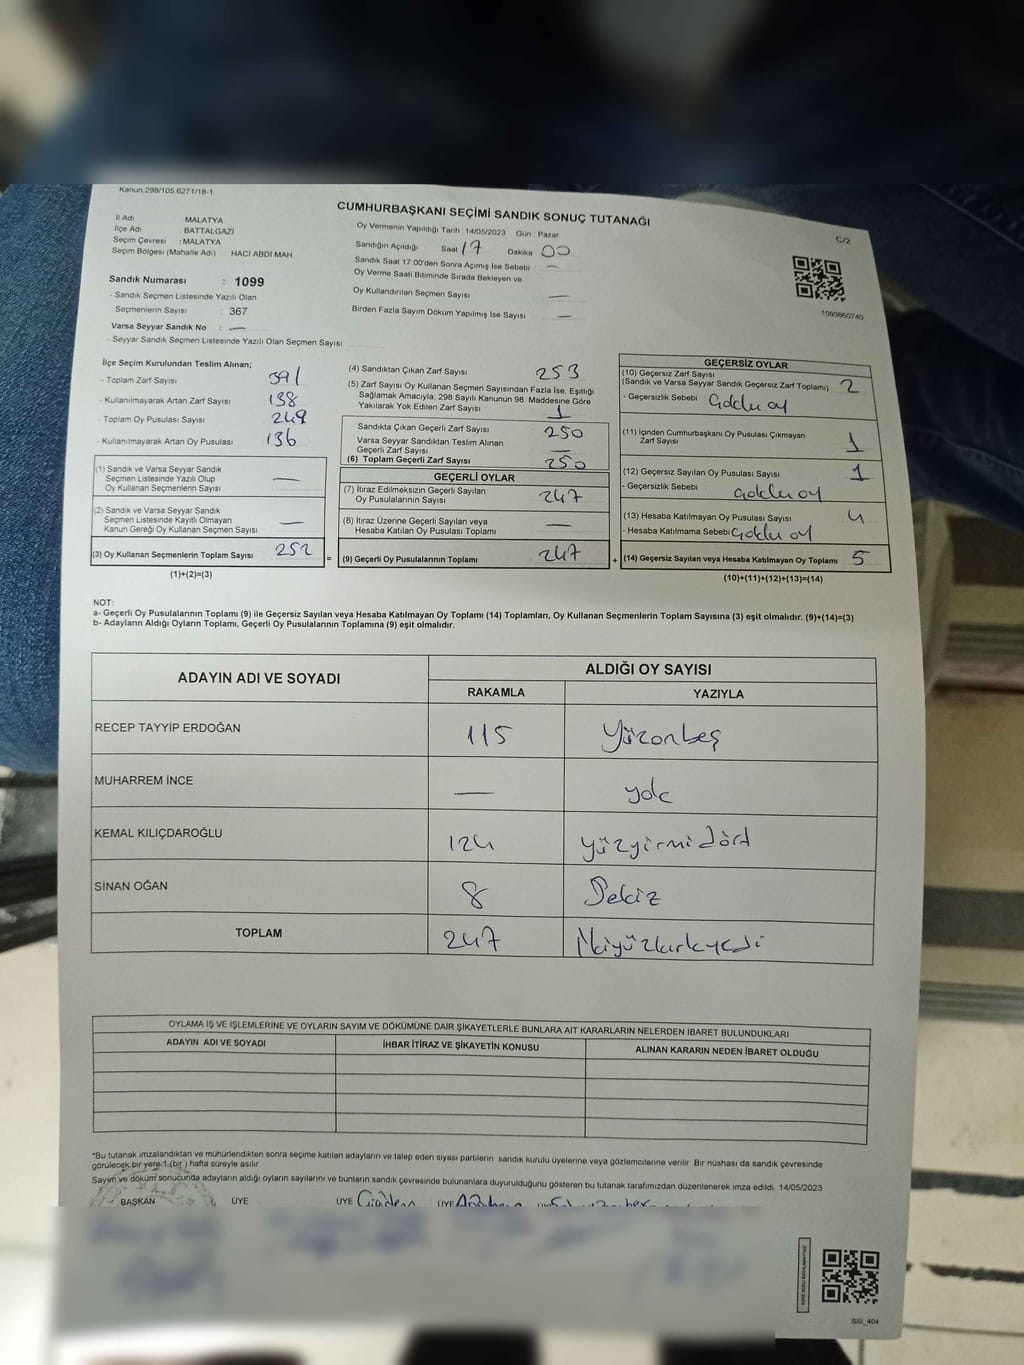 Kanun:298/105,6271/18-1
CUMHURBAŞKANI SEÇİMİ SANDIK SONUÇ TUTANAĞI
C/2
İl Adı MALATYA
İlçe Adı BATTALGAZİ
Seçim Çevresi : MALATYA
Seçim Bölgesi (Mahalle Adı) HACI ABDİ MAH
Oy Vermenin Yapıldığı Tarih : 14/05/2023 Gün : Pazar
Sandığın Açıldığı Saat 17 Dakika 00
Sandık Saat 17:00'den Sonra Açılmış İse Sebebi —
Oy Verme Saati Bitiminde Sırada Bekleyen ve
Oy Kullandırılan Seçmen Sayısı —
Birden Fazla Sayım Döküm Yapılmış İse Sayısı —
Sandık Numarası : 1099
- Sandık Seçmen Listesinde Yazılı Olan
Seçmenlerin Sayısı : 367
Varsa Seyyar Sandık No : —
- Seyyar Sandık Seçmen Listesinde Yazılı Olan Seçmen Sayısı
İlçe Seçim Kurulundan Teslim Alınan;
- Toplam Zarf Sayısı 391
- Kullanılmayarak Artan Zarf Sayısı 138
- Toplam Oy Pusulası Sayısı
- Kullanılmayarak Artan Oy Pusulası 136
(1) Sandık ve Varsa Seyyar Sandık
Seçmen Listesinde Yazılı Olup
Oy Kullanan Seçmenlerin Sayısı —
(2) Sandık ve Varsa Seyyar Sandık
Seçmen Listesinde Kayıtlı Olmayan
Kanun Gereği Oy Kullanan Seçmen Sayısı —
(3) Oy Kullanan Seçmenlerin Toplam Sayısı 252
(1)+(2)=(3)
(4) Sandıktan Çıkan Zarf Sayısı 253
(5) Zarf Sayısı Oy Kullanan Seçmen Sayısından Fazla İse, Eşitliği
Sağlamak Amacıyla, 298 Sayılı Kanunun 98. Maddesine Göre
Yakılarak Yok Edilen Zarf Sayısı 1
Sandıkta Çıkan Geçerli Zarf Sayısı 250
Varsa Seyyar Sandıktan Teslim Alınan
Geçerli Zarf Sayısı —
(6) Toplam Geçerli Zarf Sayısı 250
GEÇERLİ OYLAR
(7) İtiraz Edilmeksizin Geçerli Sayılan
Oy Pusulalarının Sayısı 247
(8) İtiraz Üzerine Geçerli Sayılan veya
Hesaba Katılan Oy Pusulaları Toplamı —
= (9) Geçerli Oy Pusulalarının Toplamı 247
GEÇERSİZ OYLAR
(10) Geçersiz Zarf Sayısı
(Sandık ve Varsa Seyyar Sandık Geçersiz Zarf Toplamı) 2
- Geçersizlik Sebebi
(11) İçinden Cumhurbaşkanı Oy Pusulası Çıkmayan
Zarf Sayısı 1
(12) Geçersiz Sayılan Oy Pusulası Sayısı 1
- Geçersizlik Sebebi
(13) Hesaba Katılmayan Oy Pusulası Sayısı 4
- Hesaba Katılmama Sebebi
+ (14) Geçersiz Sayılan veya Hesaba Katılmayan Oy Toplamı 5
(10)+(11)+(12)+(13)=(14)
NOT:
a- Geçerli Oy Pusulalarının Toplamı (9) ile Geçersiz Sayılan veya Hesaba Katılmayan Oy Toplamı (14) Toplamları, Oy Kullanan Seçmenlerin Toplam Sayısına (3) eşit olmalıdır. (9)+(14)=(3)
b- Adayların Aldığı Oyların Toplamı, Geçerli Oy Pusulalarının Toplamına (9) eşit olmalıdır.
ADAYIN ADI VE SOYADI
ALDIĞI OY SAYISI
RAKAMLA YAZIYLA
RECEP TAYYİP ERDOĞAN 115 Yüzonbeş
MUHARREM İNCE — yok
KEMAL KILIÇDAROĞLU 124 yüzyirmidört
SİNAN OĞAN 8 Sekiz
TOPLAM 247 İkiyüzkırkyedi
OYLAMA İŞ VE İŞLEMLERİNE VE OYLARIN SAYIM VE DÖKÜMÜNE DAİR ŞİKAYETLERLE BUNLARA AİT KARARLARIN NELERDEN İBARET BULUNDUKLARI
ADAYIN ADI VE SOYADI İHBAR İTİRAZ VE ŞİKAYETİN KONUSU ALINAN KARARIN NEDEN İBARET OLDUĞU
*Bu tutanak imzalandıktan ve mühürlendikten sonra seçime katılan adayların ve talep eden siyasi partilerin sandık kurulu üyelerine veya gözlemcilerine verilir. Bir nüshası da sandık çevresinde
görülecek bir yere 1 (bir ) hafta süreyle asılır.
Sayım ve döküm sonucunda adayların aldığı oyların sayılarını ve bunların sandık çevresinde bulunanlara duyurulduğunu gösteren bu tutanak tarafımızdan düzenlenerek imza edildi. 14/05/2023
BAŞKAN ÜYE ÜYE ÜYE
SSI_404